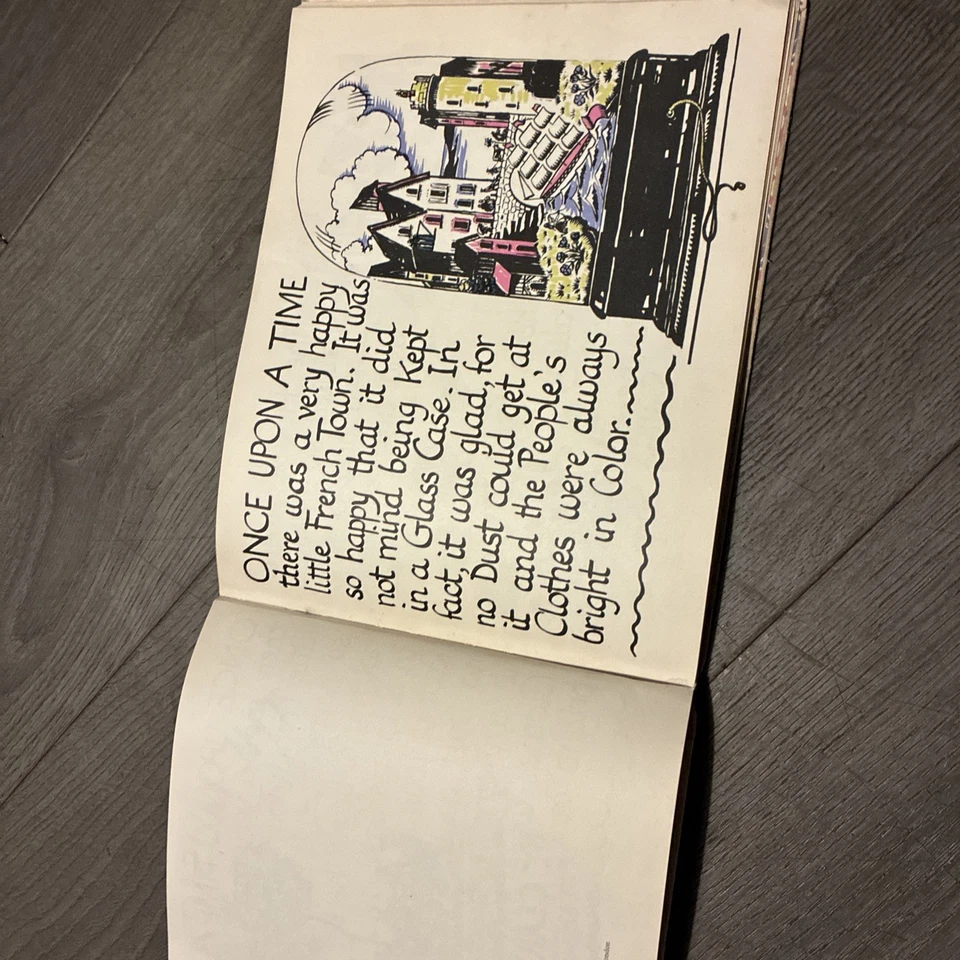 ONCE UPON A TIME
there was a very happy
little French Town. It was
so happy that it did
not mind being kept
in a Glass Case. In
fact, it was glad, for
no Dust could get at
it and the People's
Clothes were always
bright in Color.